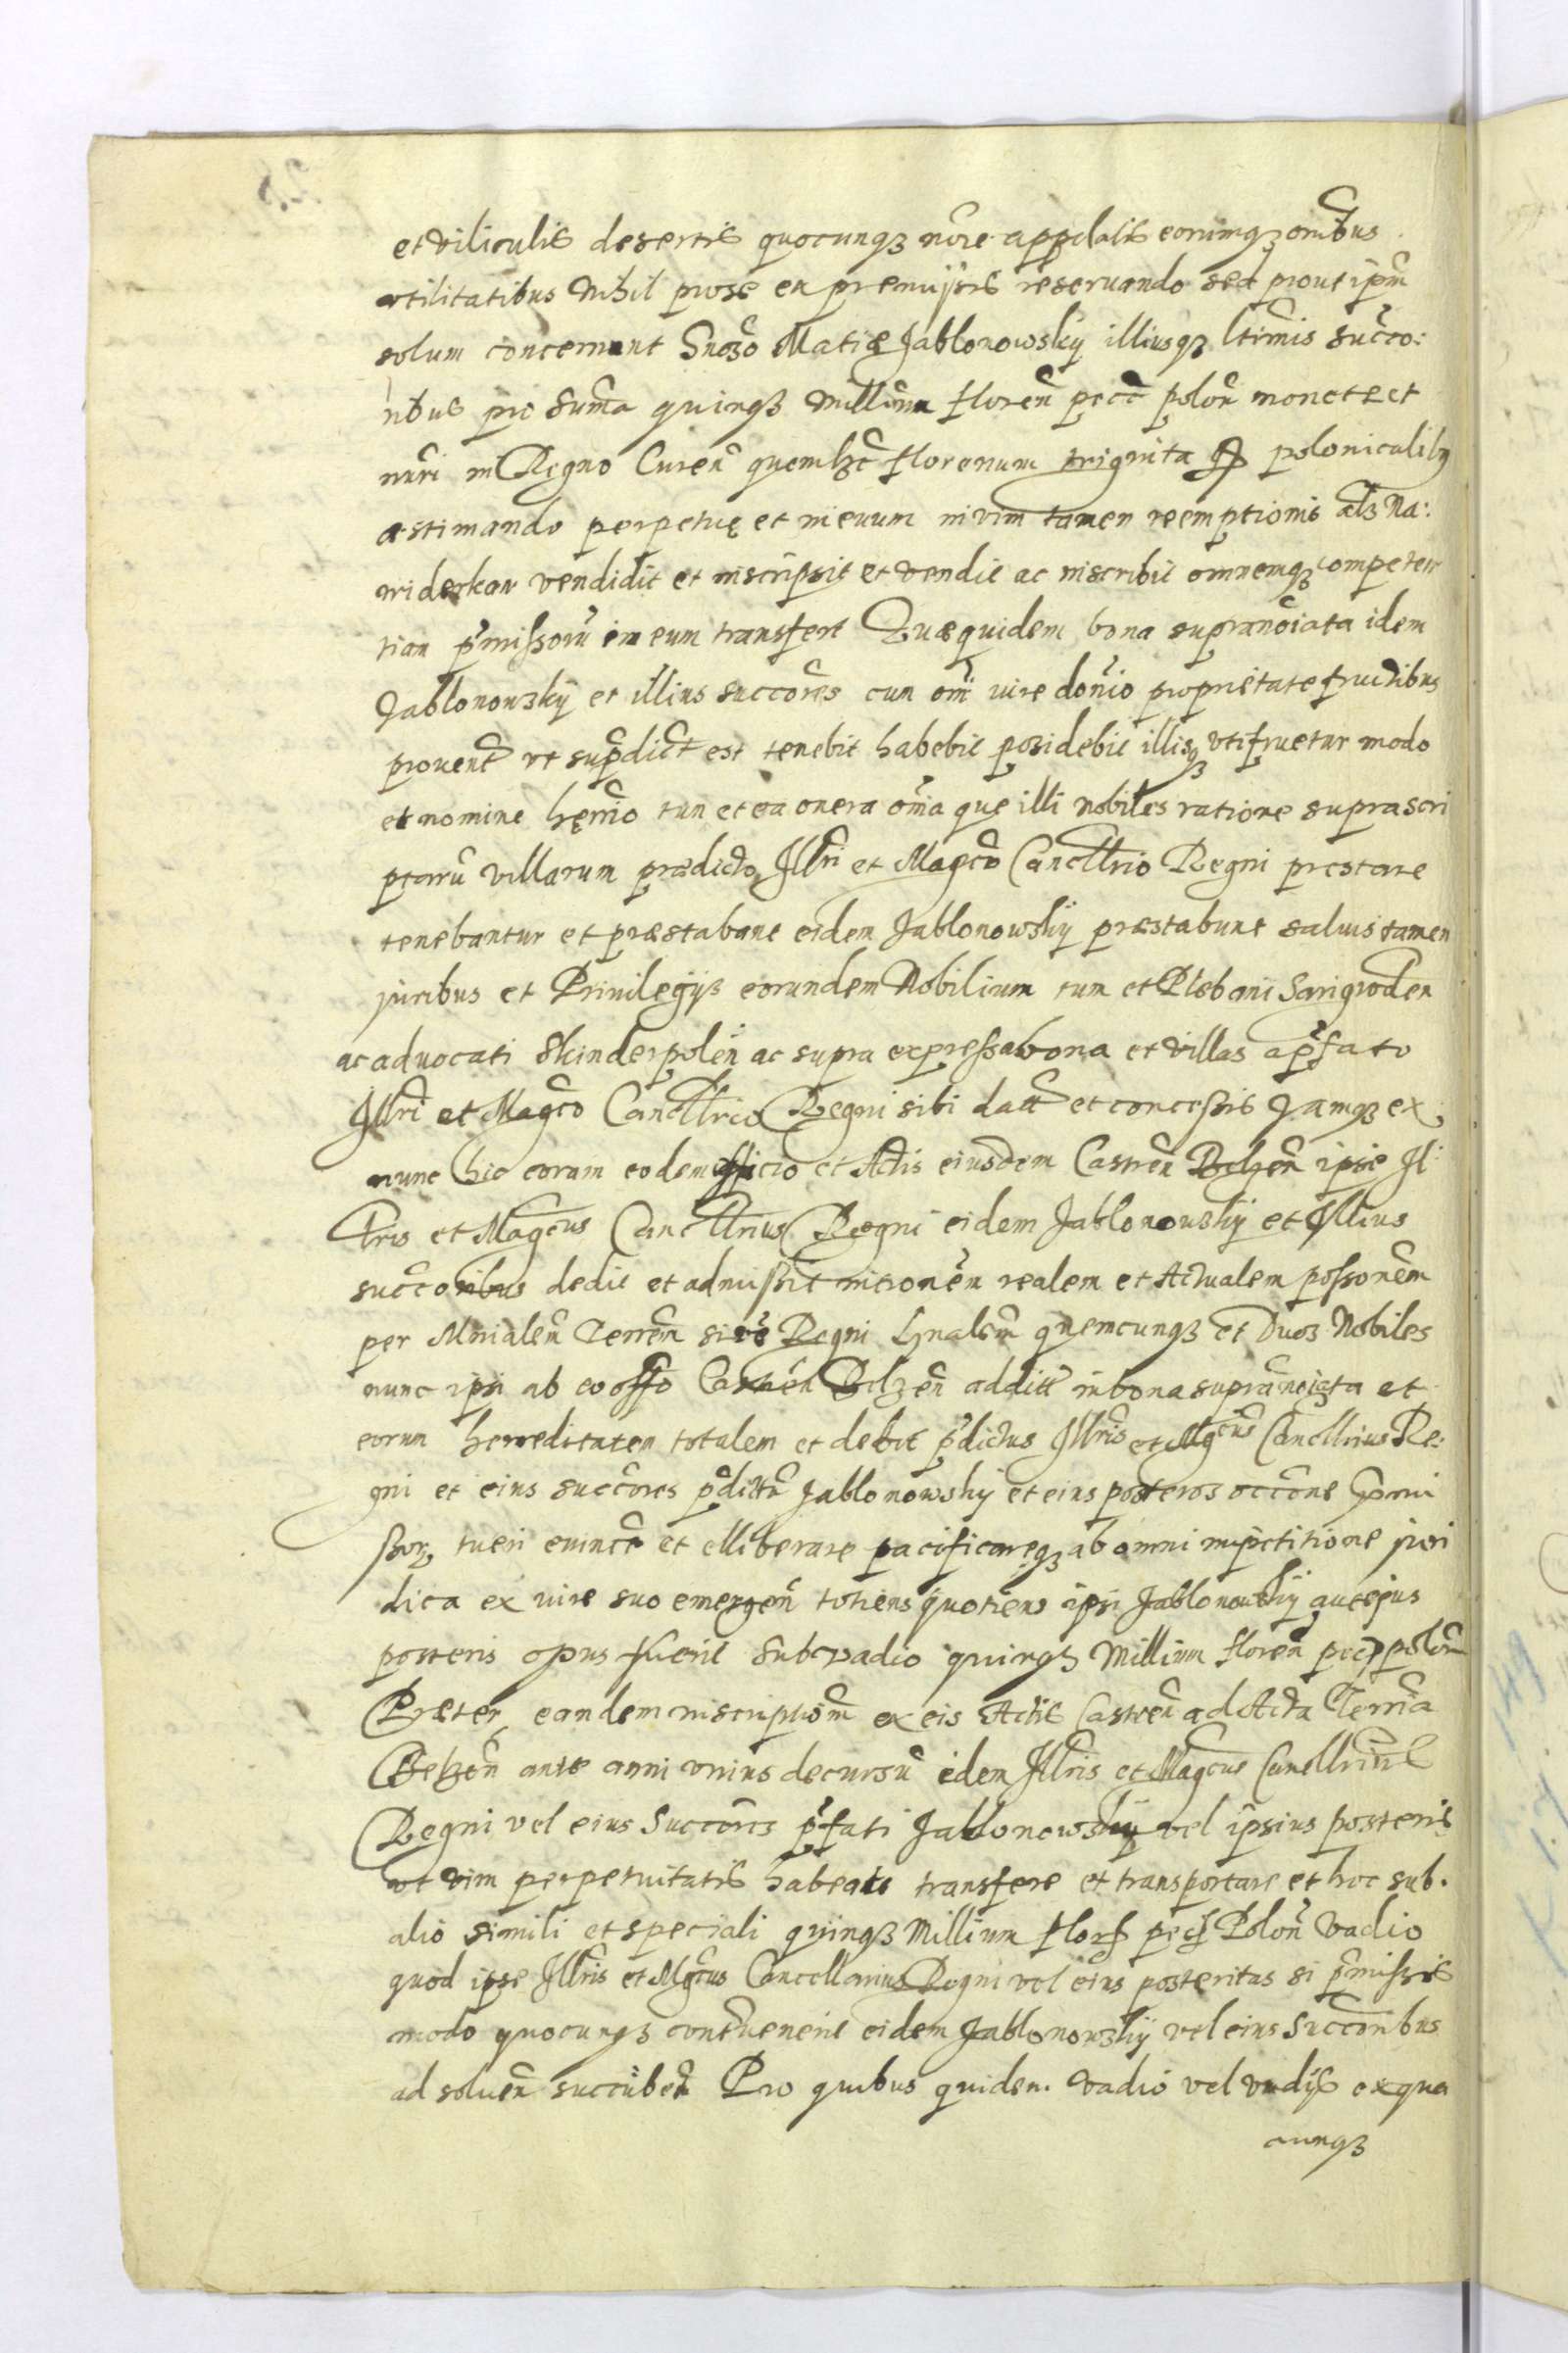 et viliculis desertis quocunqꝫ nõie appellatis eorumqꝫ omĩbus
vtilitatibus Nihil pro se ex premiſsis reservando sed prout ipm̃
solum concernunt Gnoso Matiæ Jablonowsky illiusqꝫ ltimis succo:
ribus pro sum̃a quinqꝫ milliũm floren̄ pecc̃ polon̄ monete et
nũri in Regno Curen̄ quemlꝫt florenum triginta gr̃ poloniculibꝫ
æstimando perpetuę et in euum in vim tamen reemptionis alꝫ Na:
nriderkan vendidit et inscripsit et vendit ac inscribit omnemqꝫ competen
tiam p̃missoru in eum transfert Quæquidem bona supranoĩata idem
Jablonowsky et illius succores̃ cum om̃i iure dom̃io proprietate fructibus
prouent̃ vt supdict̃ est tenebit habebit posidebit illisqꝫ vtifruetur modo
et nomine hęrrio tum et ea onera om̃ia que illi Nobiles ratione suprascri
ptorũ villarum prædicto Illri et Magco Cancllrio Regni prestare
tenebantur et præstabant eidem Jablonowsky præstabunt saluis tamen
juribus et Priuilegijs eorundem Nobilium tum et Plebani Sarigroden
ac aduocati Skinderpolen̄ ac supra expreſsa bona et villas a p̃fato
Illri et Magco Cancllrio Regni sibi datt̃ et conceſsis Jamqꝫ ex
nunc hic coram eodem officio et Actis eiusdem Castren̄ Belzen̄ ipse Il:
ltris et Magcus Cancllrius Regni eidem Jablonowsky et illius
succoribus dedit et admiſsit intromẽm realem et Actualem poſsonẽm
per Mnialem̃ Terrem̃ siue Regni Gnalem̃ quemcunqꝫ et Duos Nobiles
nunc ipsi ab eo offo Castren̄ Belzen̄ additt̃ in bona supranoĩata et
eorum herreditatem totalem et debit p̃dictus Illris et Mgcus Cancllrius Re:
gni et eius succores̃ p̃dittũ Jablonowsky et eius posteros occone p̃mi
ſsorꝫ tueri euincẽ et elliberare pacificareqꝫ ab omni impetitione juri
dica ex iure suo emergen̄ totiens quotiens ipsi Jablonowsky aut ejus
posteris opus fuerit sub vadio quinqꝫ Millium floren̄ pecc̃ polon̄
Præter eandem inscriptiom̃ ex eis Actis Castren̄ ad Acta Terrña
Belzen̄ ante anni vnius decursũ idem Illris et Magcus Cancllrius
Regni vel eius Succores̃ p̃fati Jablonowsky vel ipsius posteris
vt vim perpetuitatis habeat transfere et transportare et hoc sub.
alio simili et speciali quinqꝫ Millium flor pec Polon̄ Vadio
quod ipse Illris et Mgcus Cancellarius Regni vel eius posteritas si p̃miſsis
modo quocunqꝫ contuenerit eidem Jablonowsky vel eius Succoribus
ad soluen̄ succũbet Pro quibus quidem vadio vel vadijs ex qua
cunqꝫ